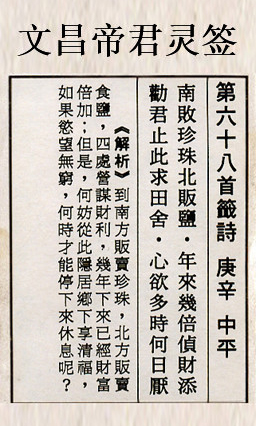 文昌帝君灵签
第六十八首籤詩 庚辛 中平
南敗珍珠北販鹽・年來幾倍偵財添
勸君止此求田舍・心欲多時何日厭
《解析》到南方販賣珍珠，北方販賣
食鹽，四處營謀財利，幾年下來已經財富
倍加；但是，何妨從此隱居鄉下享清福，
如果慾望無窮，何時才能停下來休息呢？